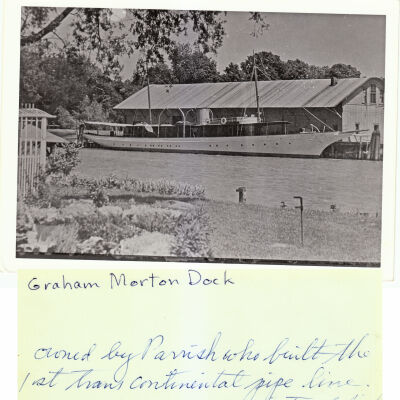 Graham Morton Dock
owned by Parrish who built the
1st trans continental pipe line.